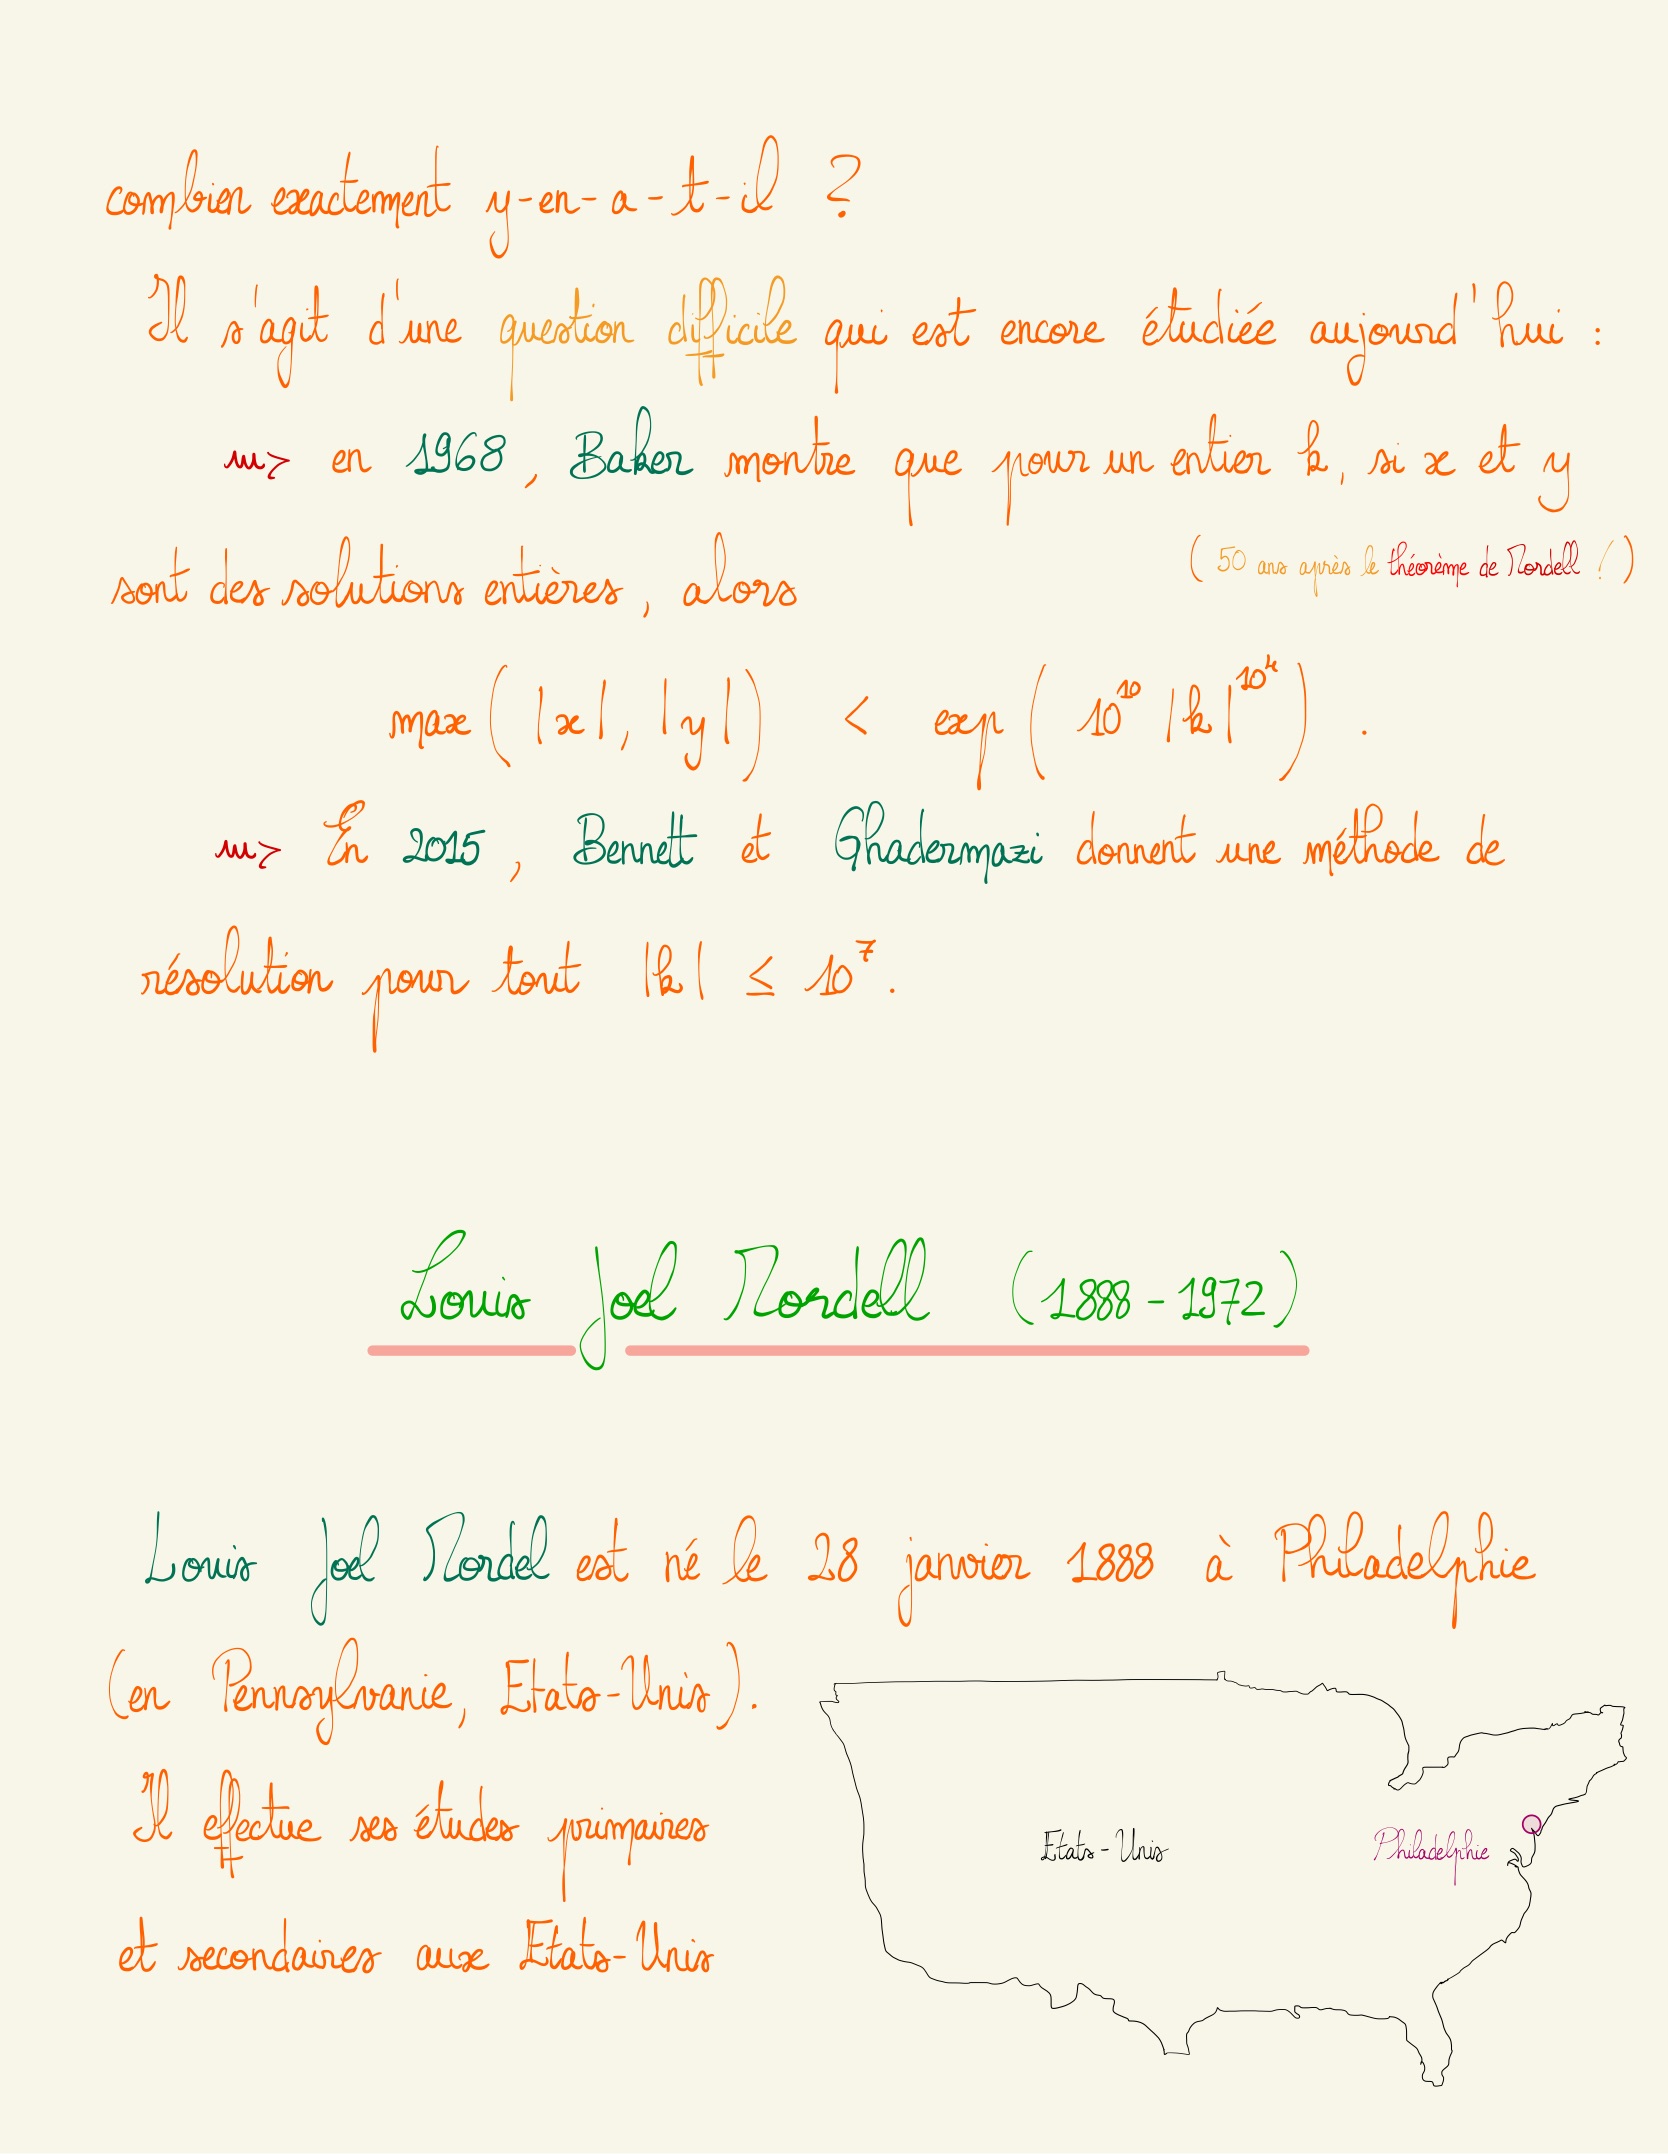 combien exactement y-en-a-t-il ?
Il s'agit d'une question difficile qui est encore étudiée aujourd'hui :
⟿ en 1968, Baker montre que pour un entier k, si x et y
(50 ans après le théorème de Mordell !)
sont des solutions entières, alors
max(|x|, |y|) < exp(10^10 |k|^10^4).
⟿ En 2015, Bennett et Ghadermazi donnent une méthode de
résolution pour tout |k| ≤ 10^7.
Louis Joel Mordell (1888-1972)
Louis Joel Mordel est né le 28 janvier 1888 à Philadelphie
(en Pennsylvanie, Etats-Unis).
Il effectue ses études primaires
et secondaires aux Etats-Unis
Etats-Unis
Philadelphie